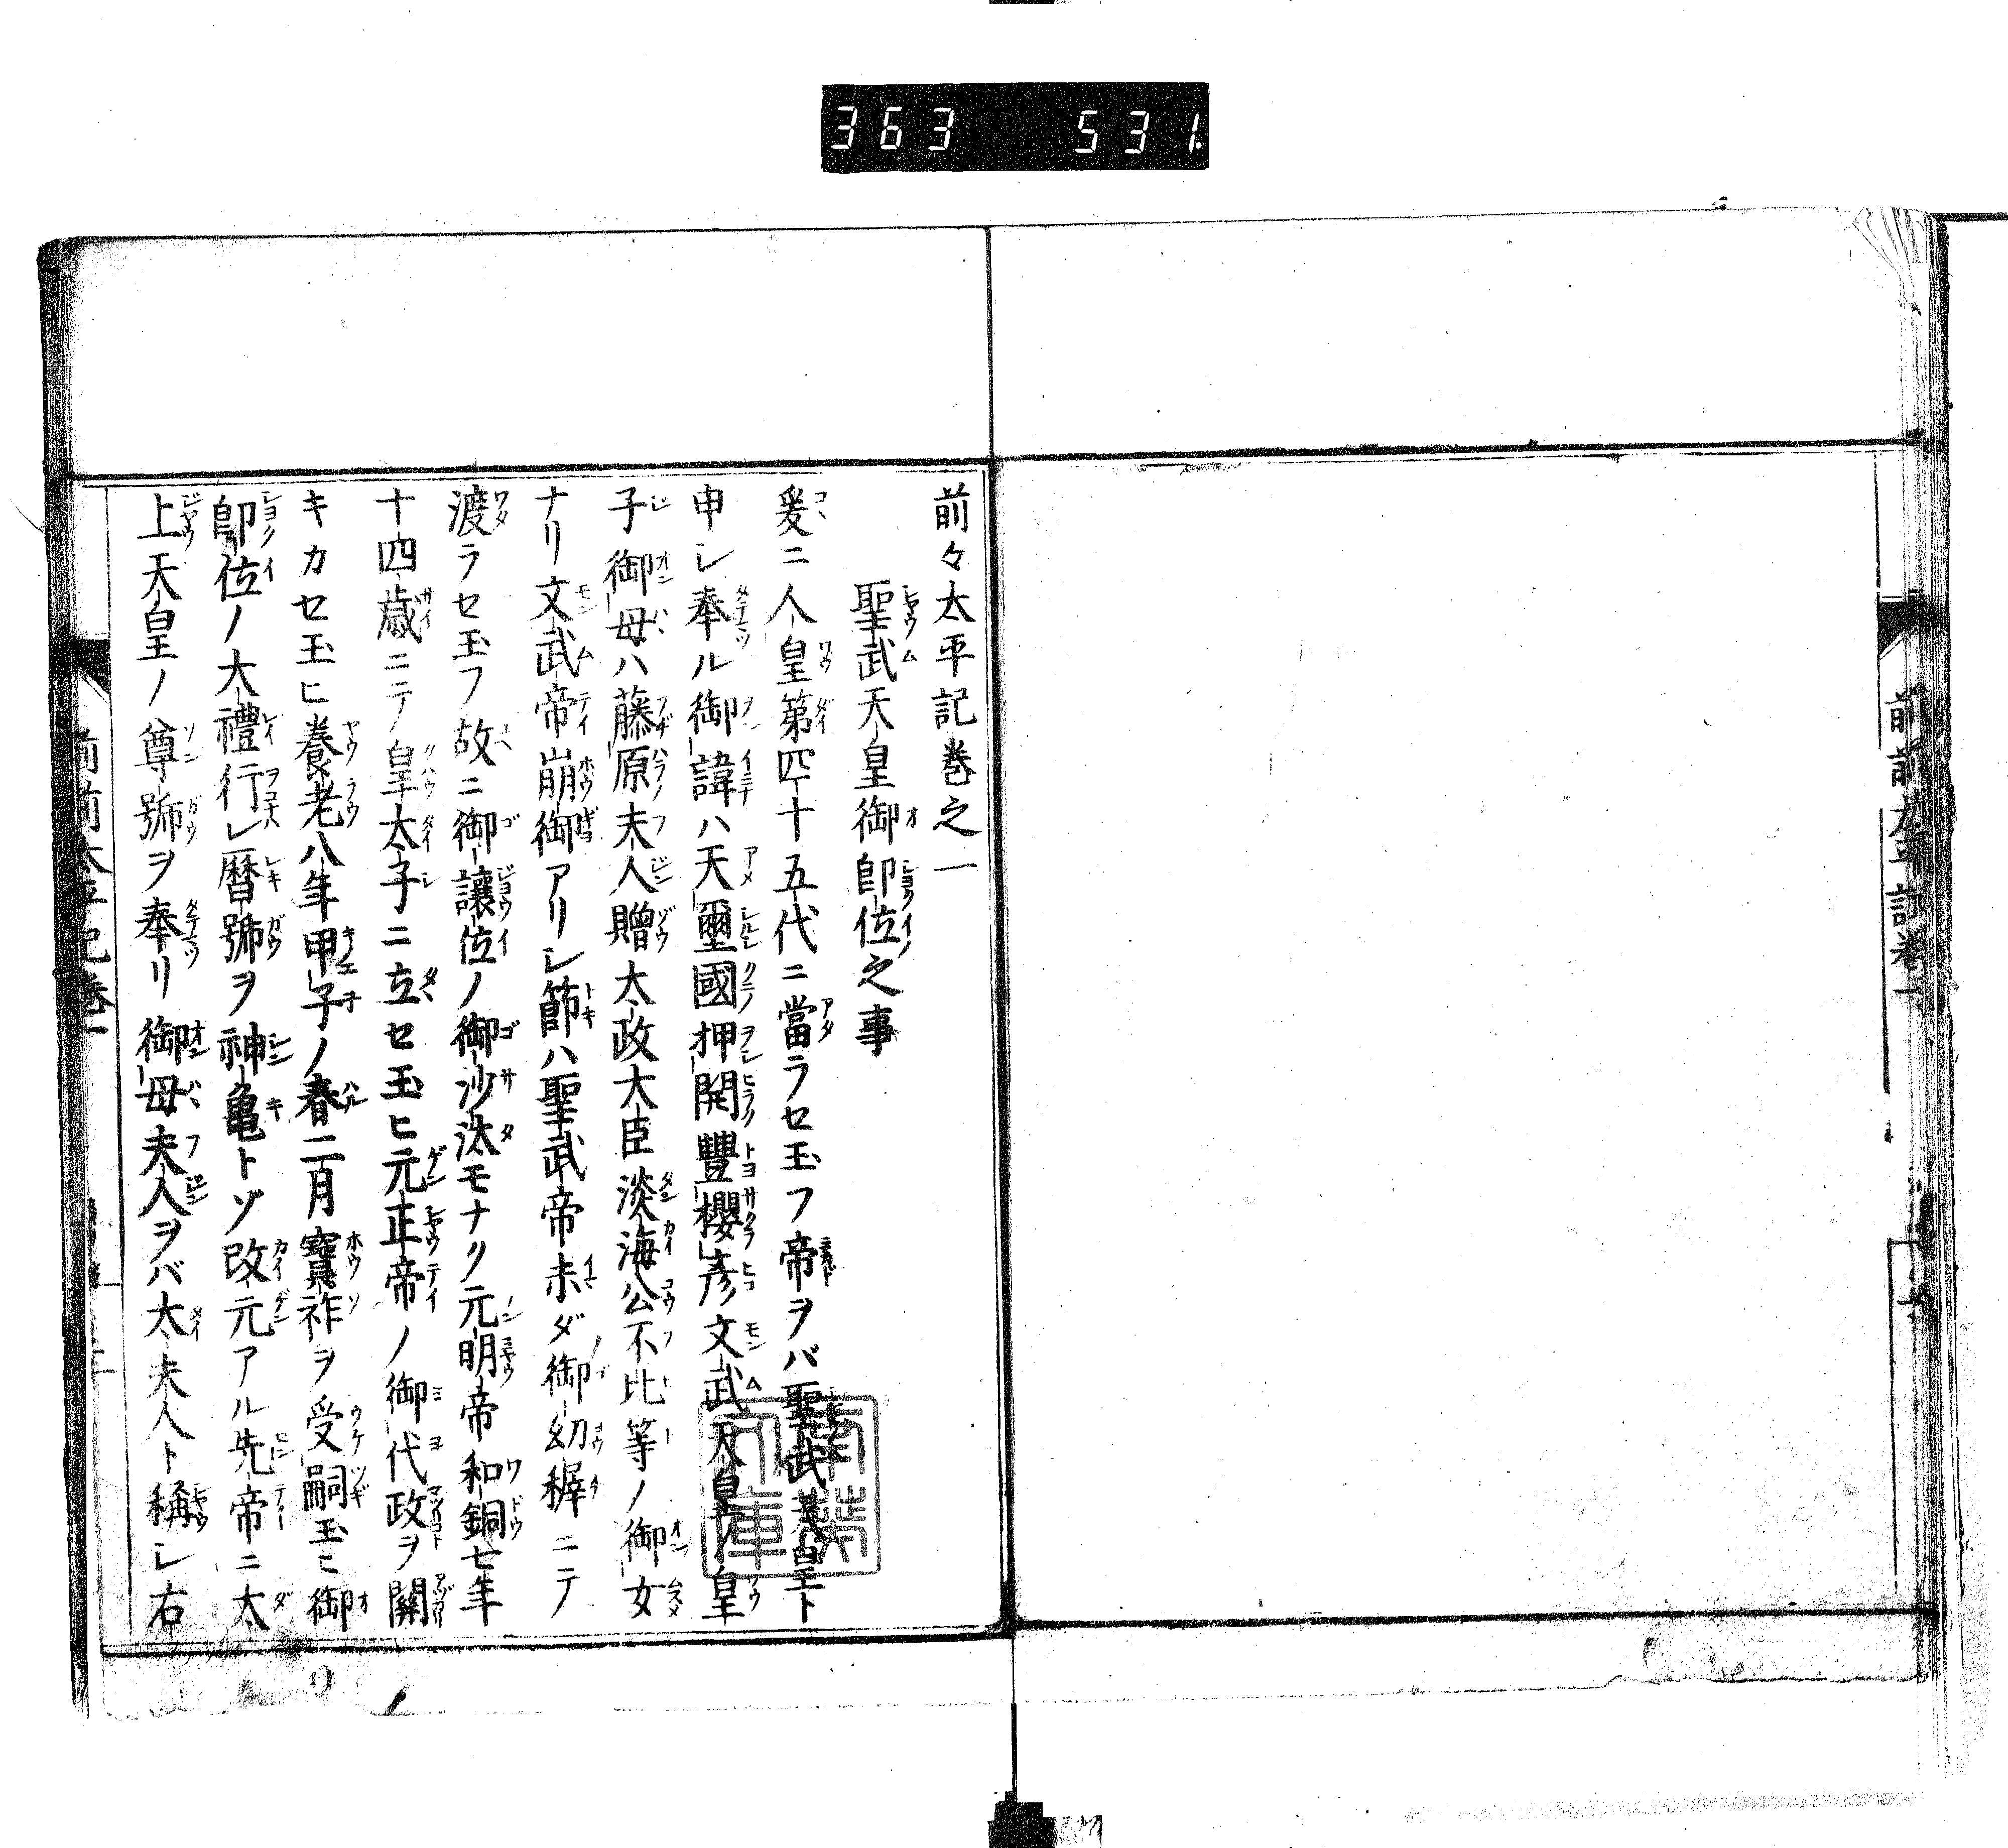 363 531
前前太平記卷一
前々太平記卷之一
聖武天皇御即位之事
爰ニ人皇第四十五代ニ當ラセ玉フ帝ヲバ聖武天皇ト
申シ奉ル御諱ハ天璽國押開豐櫻彥文武天皇ノ皇
子御母ハ藤原夫人贈太政大臣淡海公不比等ノ御女
ナリ文武帝崩御アリシ節ハ聖武帝未ダ御幼穉ニテ
渡ラセ玉フ故ニ御讓位ノ御沙汰モナク元明帝和銅七年
十四歳ニテ皇太子ニ立セ玉ヒ元正帝ノ御代政ヲ關
キカセ玉ヒ養老八年甲子ノ春二月寶祚ヲ受嗣玉ヒ御
即位ノ大禮行レ曆號ヲ神亀トゾ改元アル先帝ニ太
上天皇ノ尊號ヲ奉リ御母夫人ヲバ太夫人ト稱シ右
前前太平記卷一